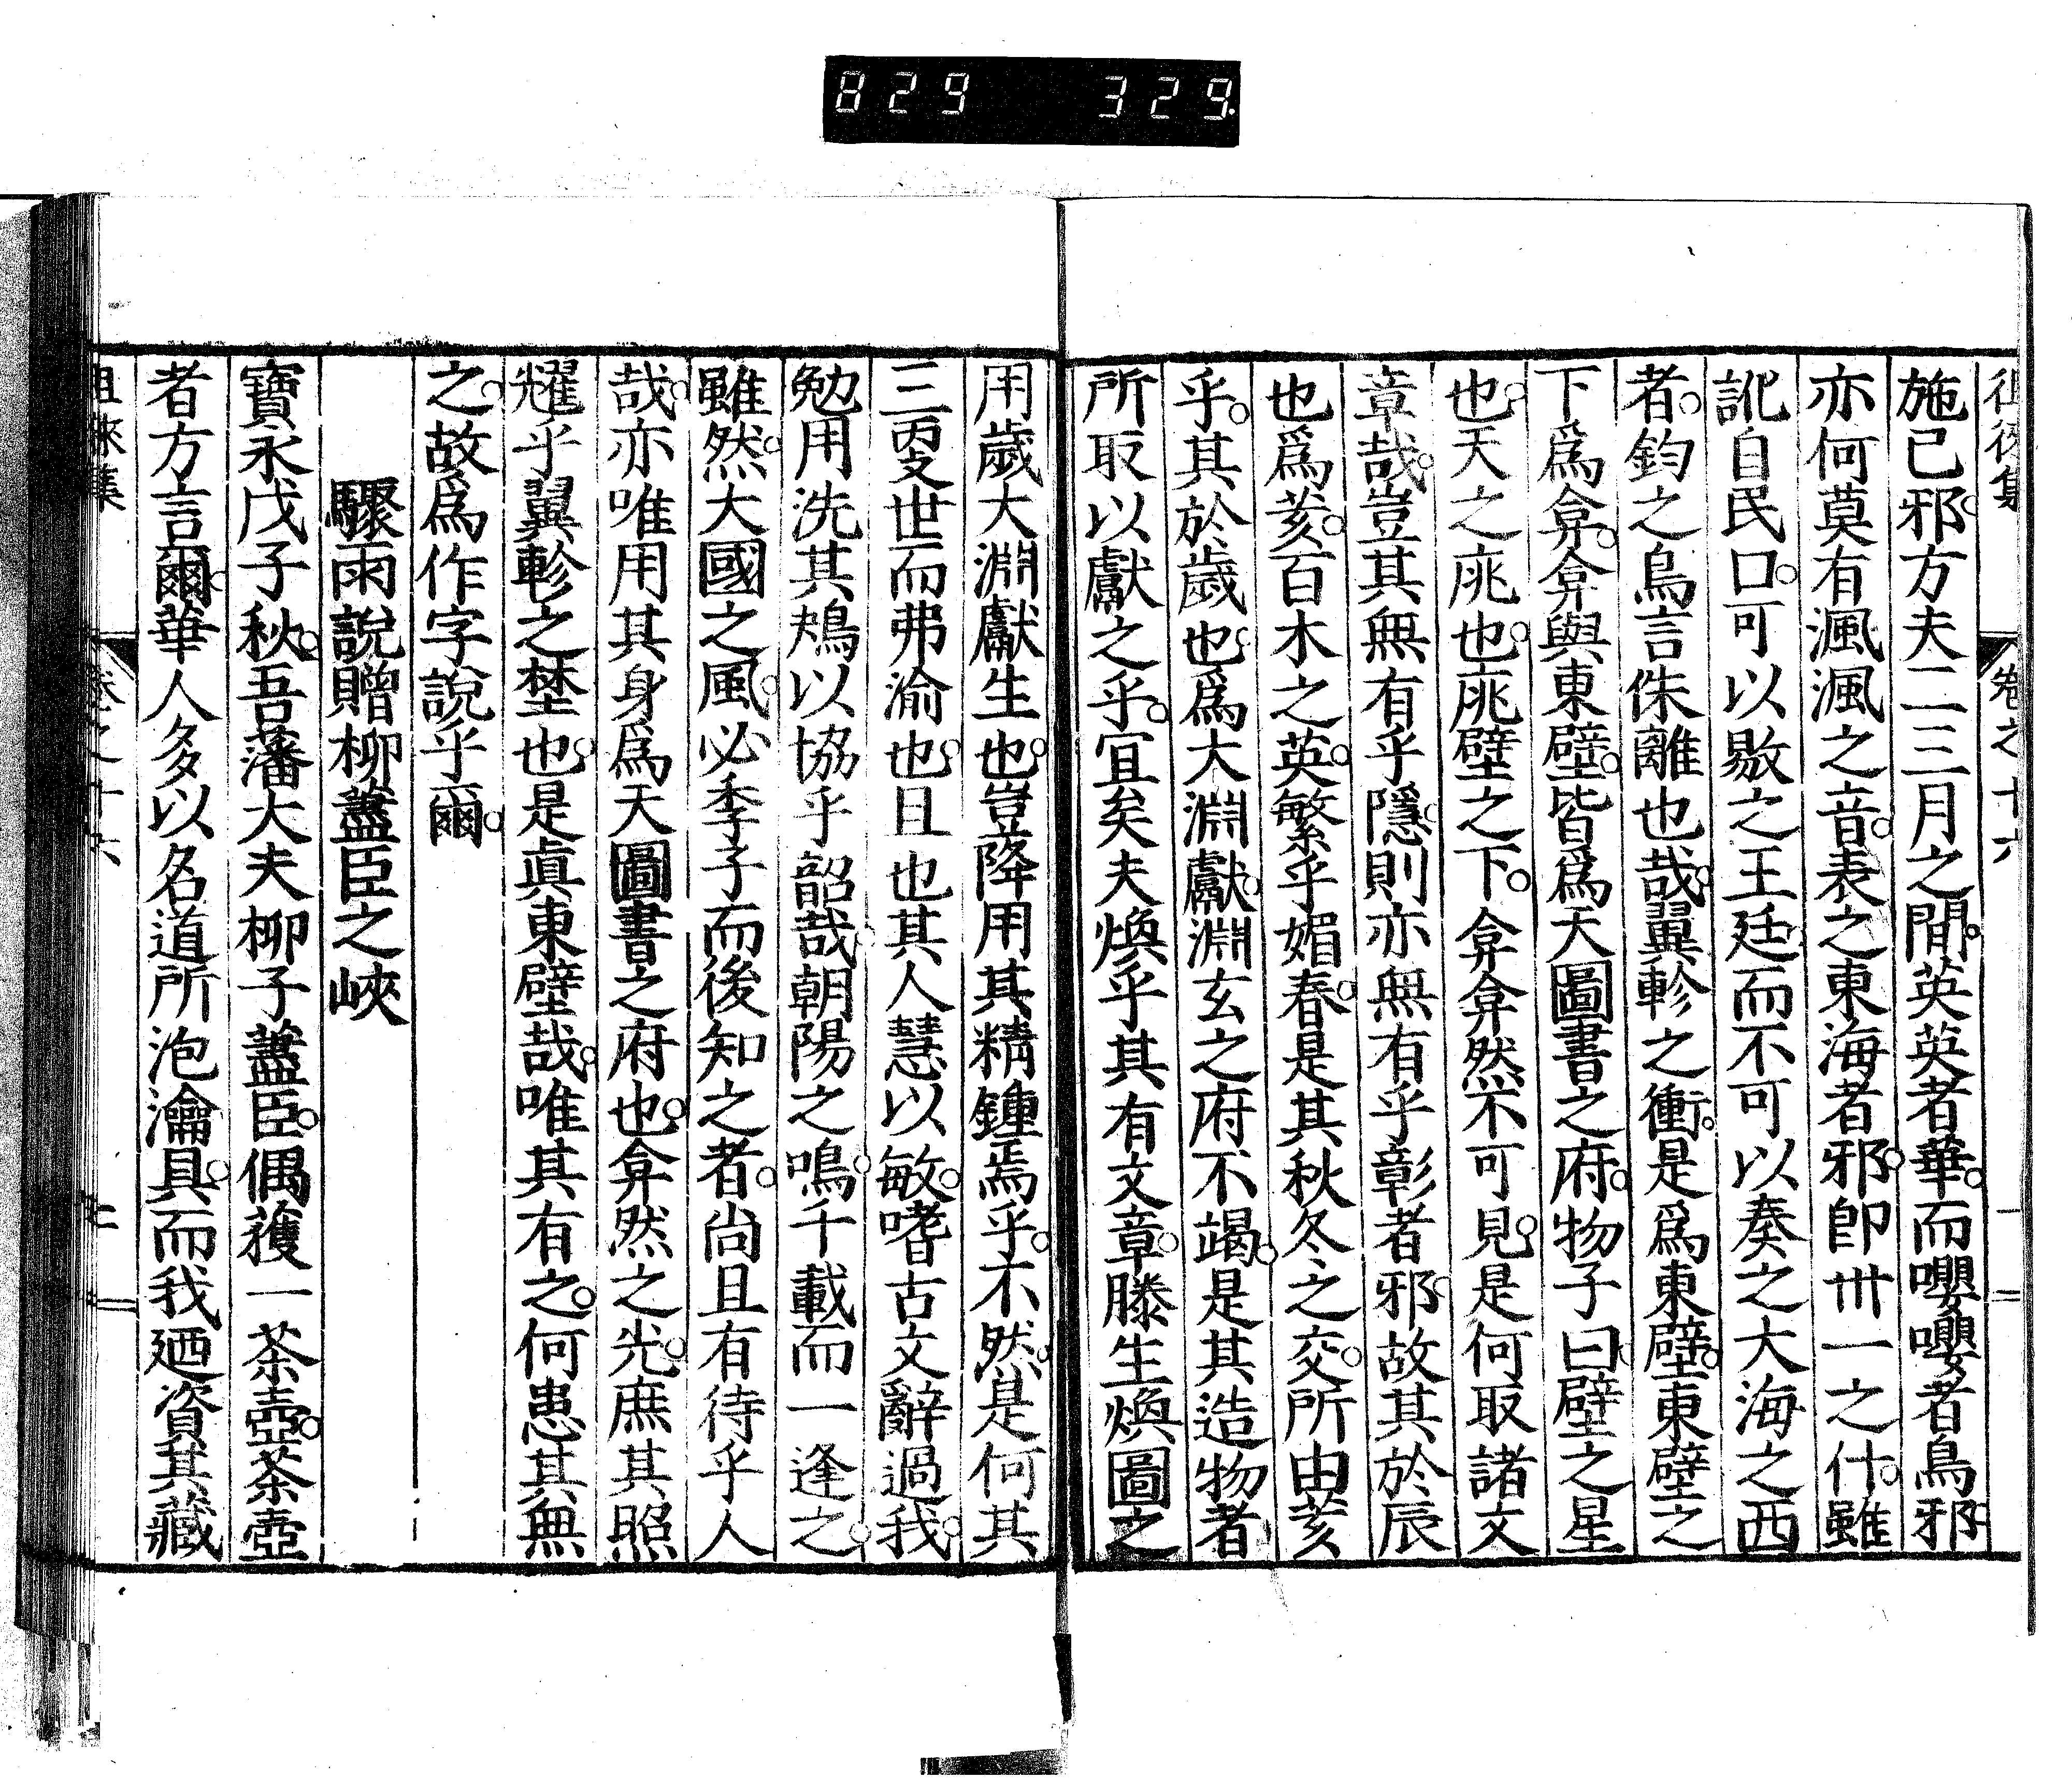 829 329.
徂徠集 卷之十六 一
施已邪方夫二三月之間英英者華而嚶嚶者鳥邪
亦何莫有渢渢之音表之東海者邪卽卅一之什雖
訛自民口可以敭之王廷而不可以奏之大海之西
者鈞之烏言侏離也哉翼軫之衝是爲東壁東壁之
下爲弇弇與東壁皆爲天圖書之府物子曰壁之星
也天之庣也庣壁之下弇弇然不可見是何取諸文
章哉豈其無有乎隱則亦無有乎彰者邪故其於辰
也爲荄百木之英繁乎媚春是其秋冬之交所由荄
乎其於歲也爲大淵獻淵玄之府不竭是其造物者
所取以獻之乎宜矣夫煥乎其有文章滕生煥圖之
用歲大淵獻生也豈降用其精鍾焉乎不然是何其
三更世而弗渝也且也其人慧以敏嗜古文辭過我
勉用洗其鴂以協乎韶哉朝陽之鳴千載而一逢之
雖然大國之風必季子而後知之者尙且有待乎人
哉亦唯用其身爲天圖書之府也弇然之光庶其照
耀乎翼軫之埜也是眞東壁哉唯其有之何患其無
之故爲作字說乎爾
驟雨說贈柳藎臣之峽
寶永戊子秋吾藩大夫柳子藎臣偶獲一茶壺茶壺
者方言爾華人多以名道所泡瀹具而我廼資其藏
徂徠集 卷之十六 二